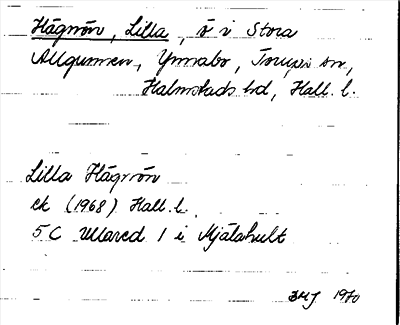 Hägnön, Lilla, ö i Stora
Allgunnen, Ynnabo, Torups sn,
Halmstads hd, Hall. l.
Lilla Hägnön
ek (1968) Hall. l.
5C Ullared 1 i Mjälahult
1970